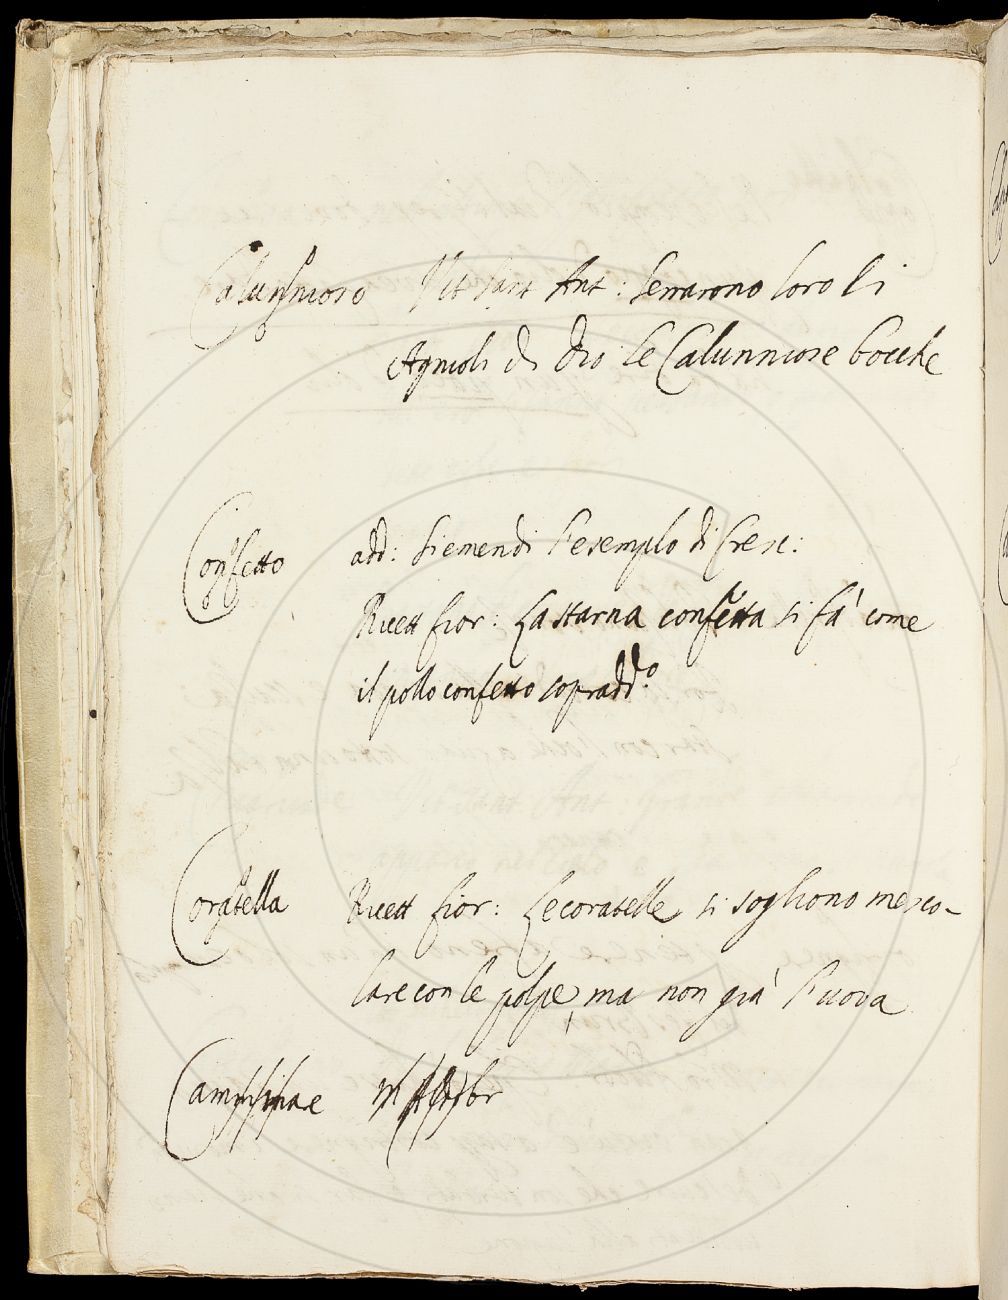 Calunnioso Vit Sant Ant: Serrarono loro li
Agnioli di Dio le Calunniose bocche
Confetto add: Si emendi l'esemplo di Cresc:
Ricett fior: La starna confetta si fà come
il pollo confetto sopradd.o
Coratella Ricett fior: Le coratelle si sogliono mesco-
lare con le polpe, ma non già l'uova